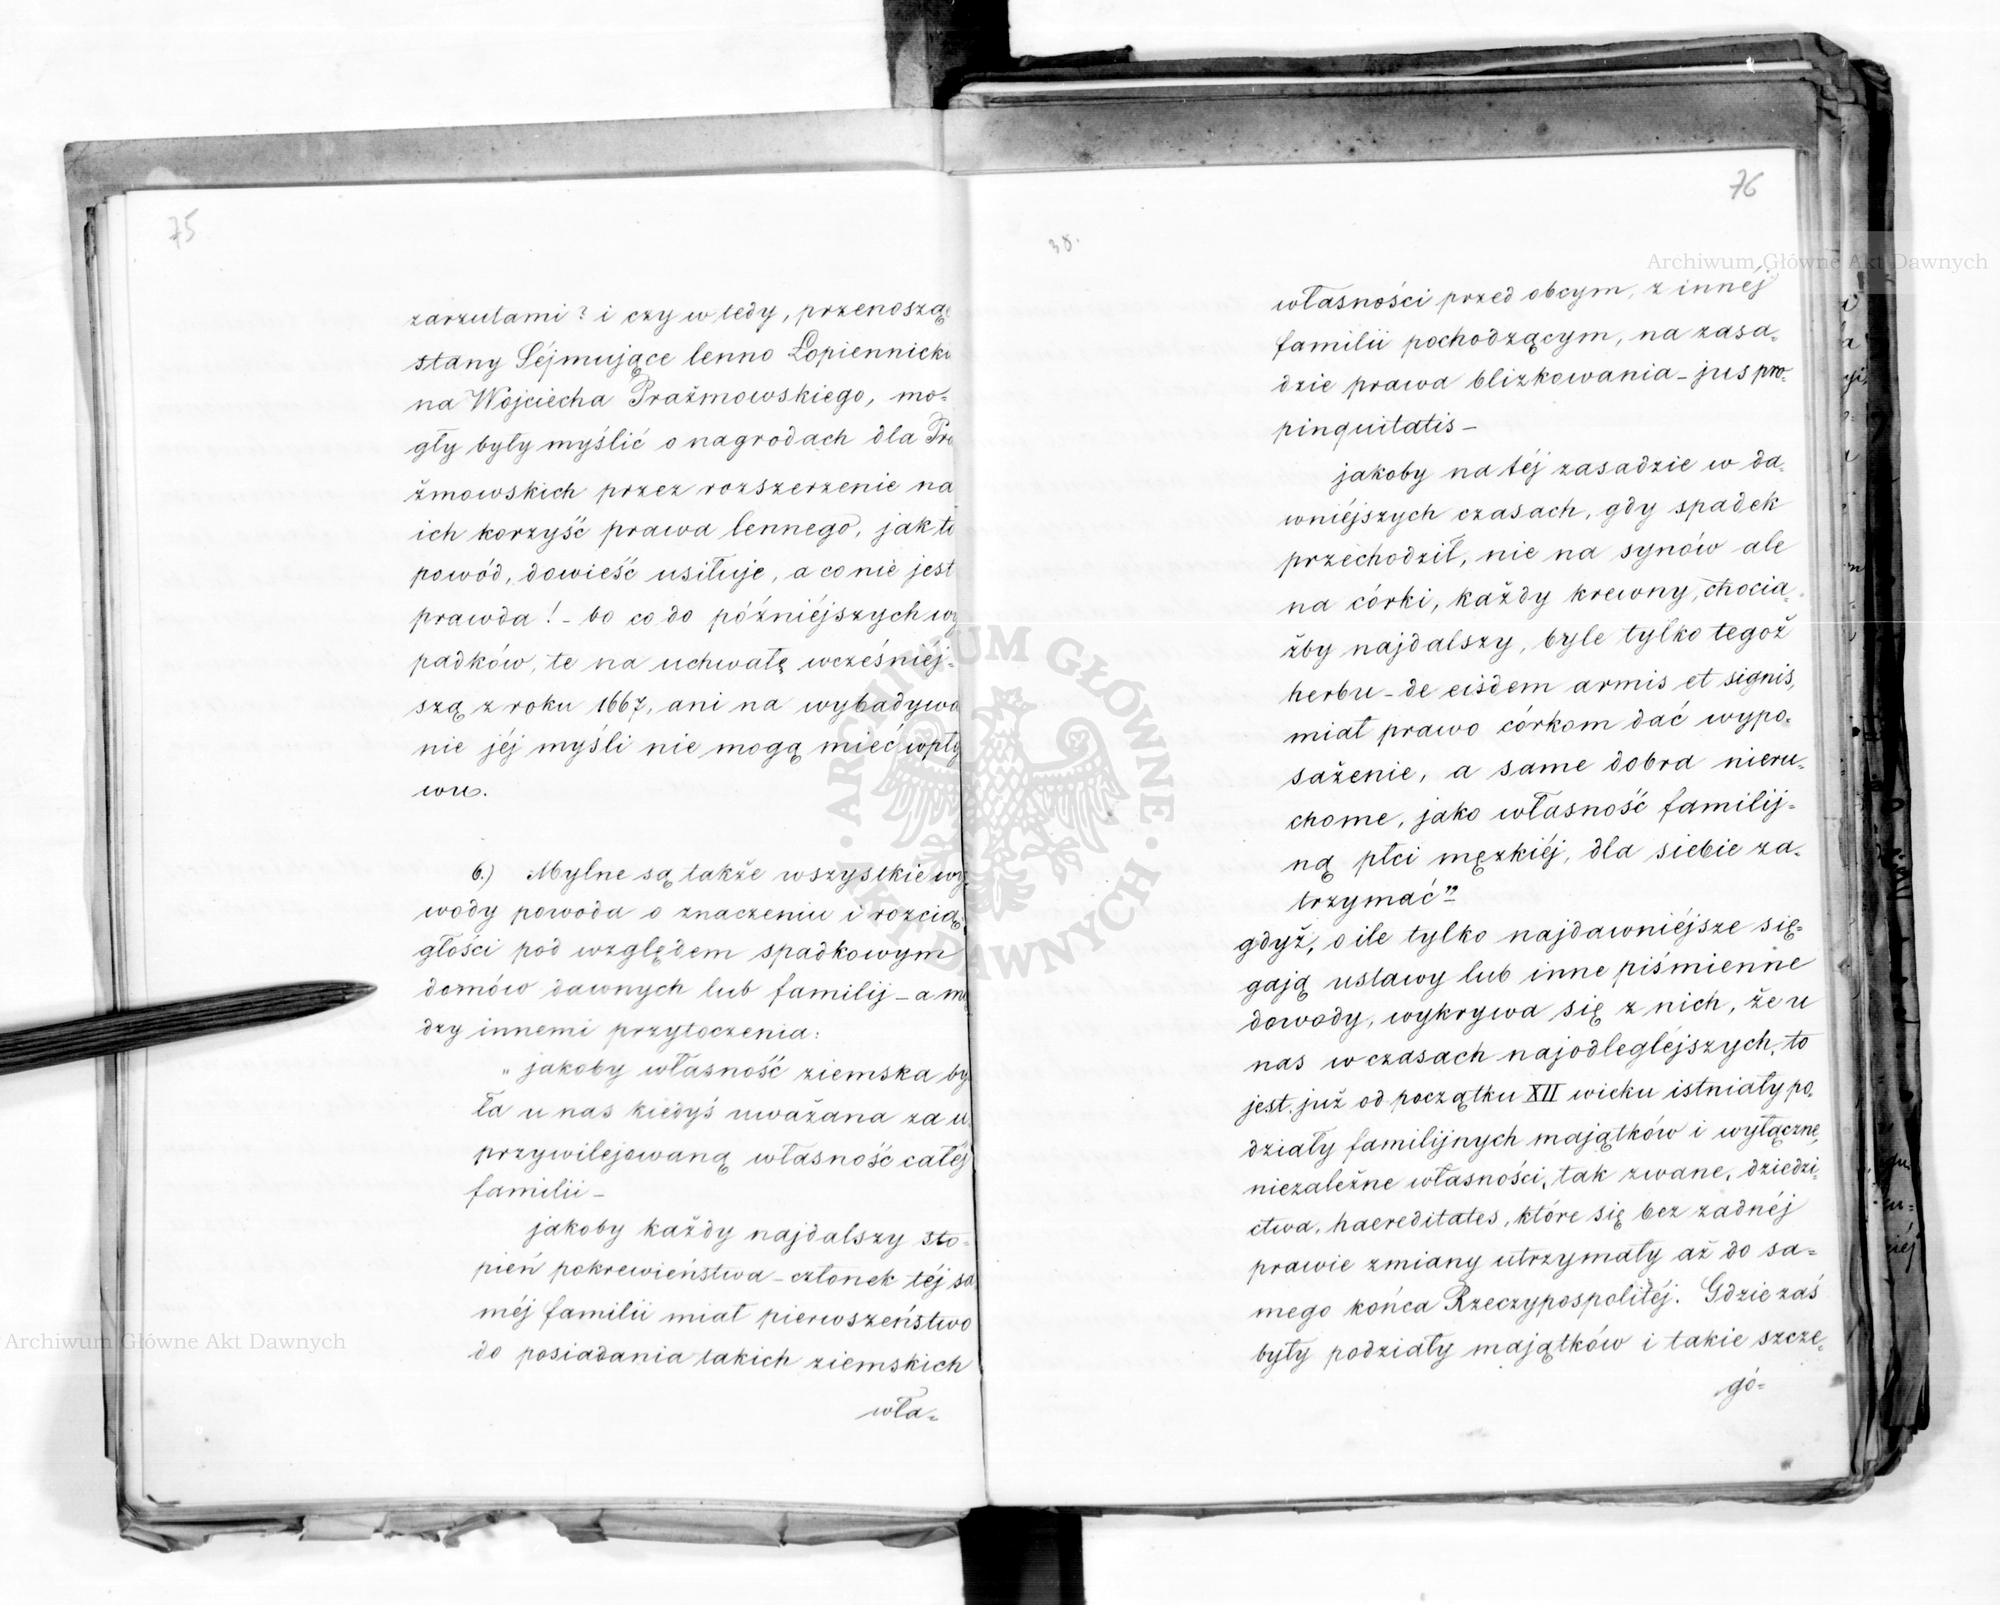 75
zarzutami? i czy wtedy, przenosząc
stany Séjmujące lenno Łopiennick
na Wojciecha Prażmowskiego, mo=
gły były myślić o nagrodach dla Pra
żmowskich przez rozszerzenie na
ich korzyść prawa lennego, jak to
powód, dowieść usiłuje, a co nie jest
prawda! – bo co do późniéjszych wy
padków, te na uchwałę wcześniej=
szą z roku 1667, ani na wybadywa
nie jéj myśli nie mogą mieć wpły
wu.
6.) Mylne są także wszystkie wy
wody powoda o znaczeniu i rozcią
głości pod względem spadkowym
domów dawnych lub familij – a mię
dzy innemi przytoczenia:
„ jakoby własność ziemska by
ła u nas kiedyś uważana za u
przywilejowaną własność całéj
familii –
jakoby każdy najdalszy sto=
pień pokrewieństwa – członek téj sa
méj familii miał pierwszeństwo
do posiadania takich ziemskich
wła=
76
38.
własności przed obcym, z innéj
familii pochodzącym, na zasa=
dzie prawa blizkowania – jus pro=
pinquitatis –
jakoby na téj zasadzie w da=
wniéjszych czasach, gdy spadek
przechodził, nie na synów ale
na córki, każdy krewny, chocia=
żby najdalszy, byle tylko tegoż
herbu – de eisdem armis et signis,
miał prawo córkom dać wypo=
sażenie, a same dobra nieru=
chome, jako własność familij=
ną płci męzkiéj, dla siebie za=
trzymać" –
gdyż, o ile tylko najdawniéjsze się=
gają ustawy lub inne piśmienne
dowody, wykrywa się z nich, że u
nas w czasach najodległéjszych, to
jest. już od początku XII wieku istniały po=
działy familijnych majątków i wyłączne,
niezależne własności, tak zwane, dziedzi=
ctwa, haereditates, które się bez żadnéj
prawie zmiany utrzymały aż do sa=
mego końca Rzeczypospolitéj. Gdzie zaś
były podziały majątków i takie szcze=
gó=
Archiwum Główne Akt Dawnych
Archiwum Główne Akt Dawnych
ARCHIWUM GŁÓWNE AKT DAWNYCH